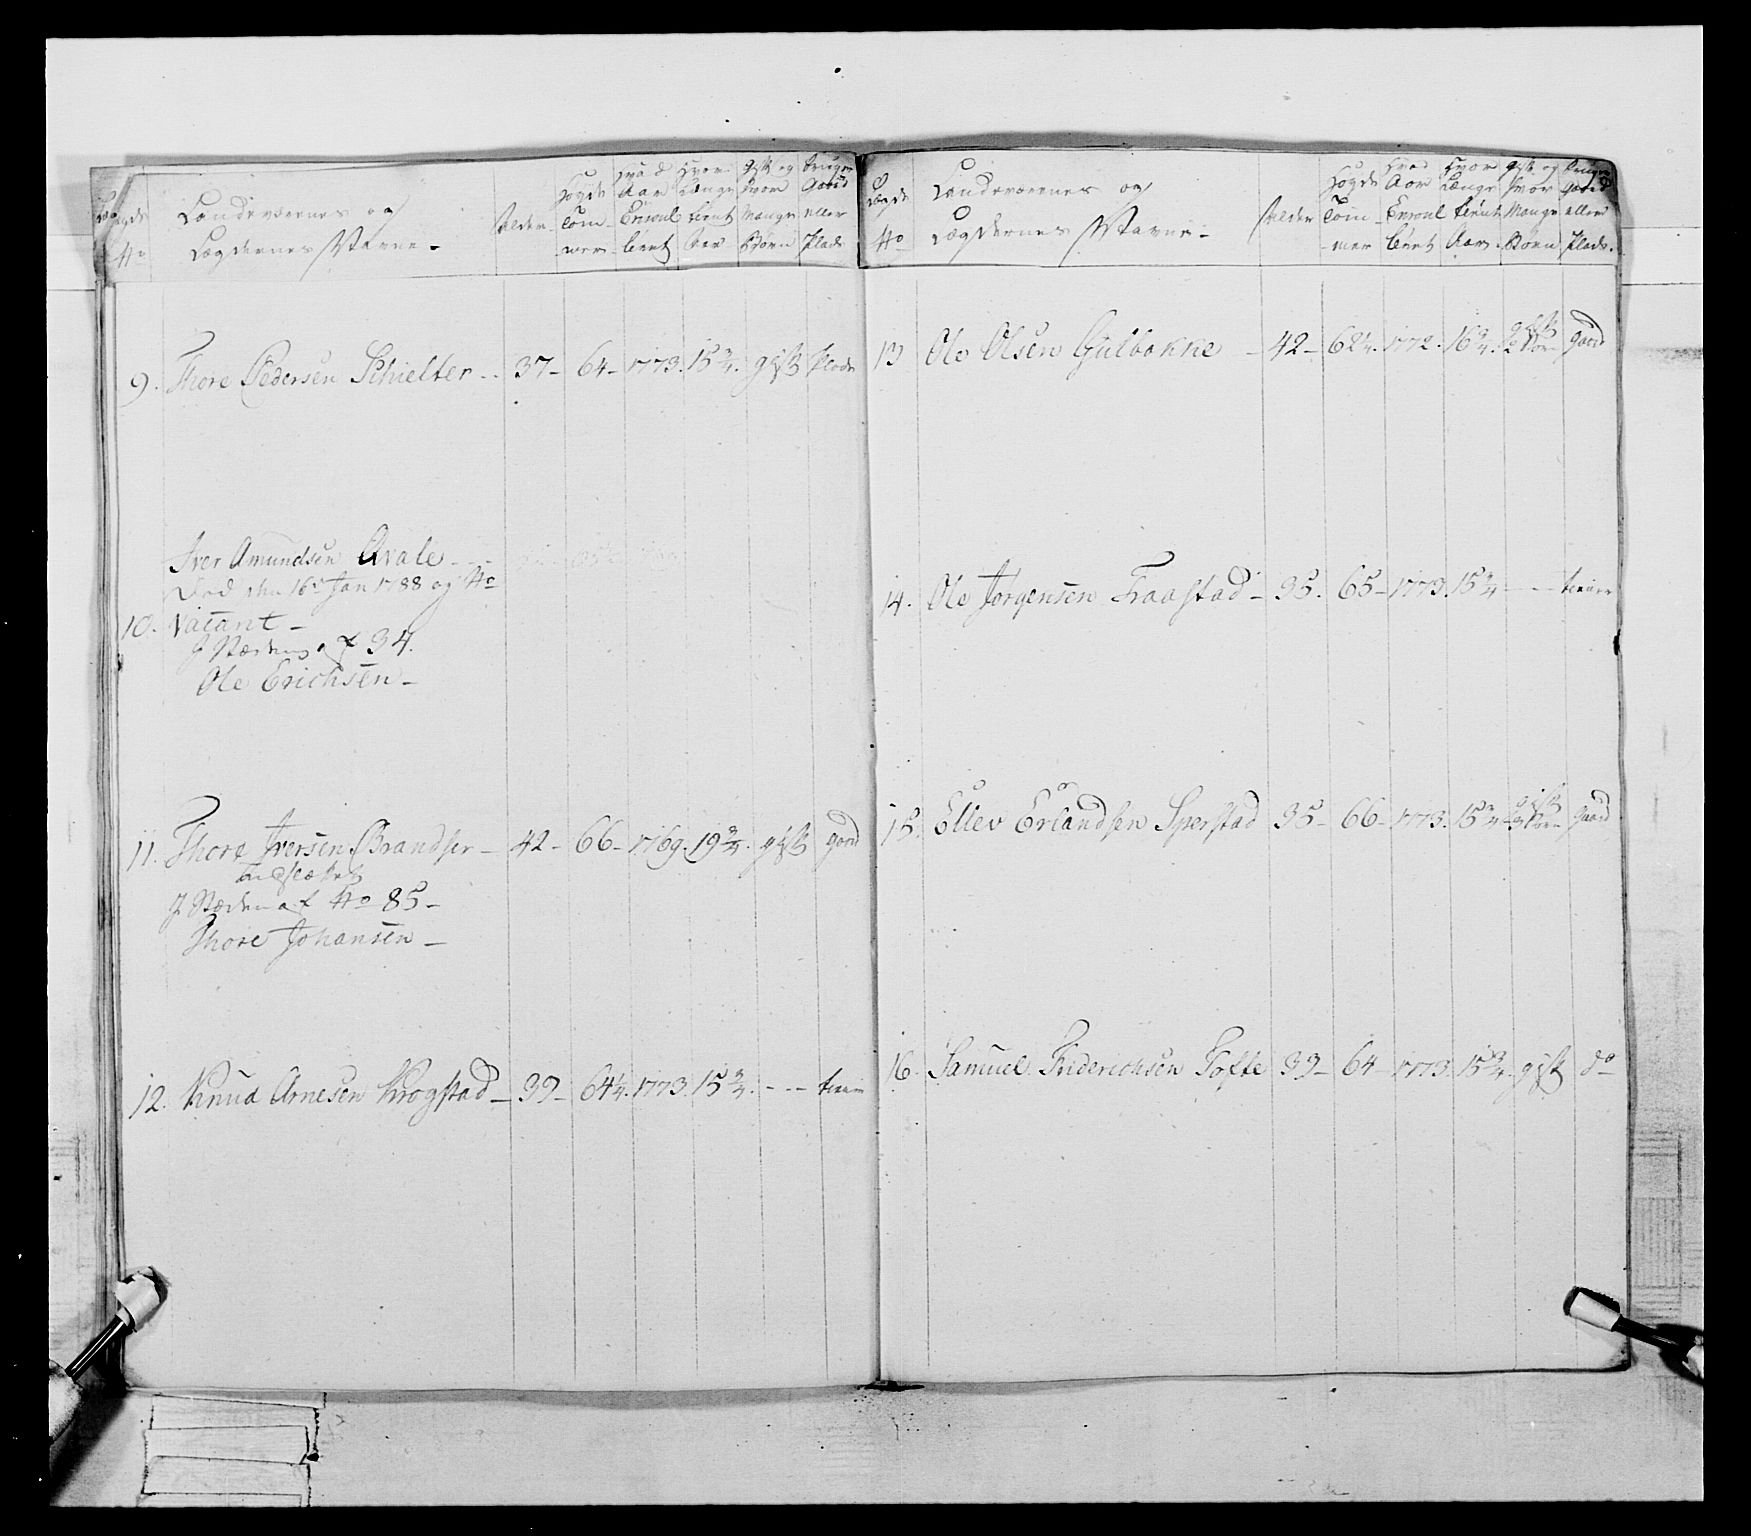 Lægde No
Landeværnes og
Lægdernes Navne -
Alder
Høyde Tom- mer
Hvad Aar Enroul- leret
Hvor Længe tient Aar
Gift og hvor Mange Børn
Bruger Gaard eller Plads
9. Thore Pedersen Schielter - 37 - 64 - 1773. 15 3/4. gift Plads
Iver Amundsen Qvale - - -
Død den 16de Jan 1788 og No
10. Vacant -
J Stæden af 34.
Ole Erichsen -
11. Thore Iversen Brandser - 42 - 66 - 1769. 19 3/4. gift gaard
Udslættet
J Stæden af No 85 -
Thore Johansen -
12. Knud Arnesen Krogstad - 39 - 64 1/4. 1773. 15 3/4. - - - tiener
Lægde No
Landeværnes og
Lægdernes Navne -
Alder
Høyde Tom- mer
Hvad Aar Enroul- leret
Hvor Længe tient Aar
Gift og hvor Mange Børn
Bruger Gaard eller Plads.
13 Ole Olsen Gulbakke - 42 - 62 1/4. 1772. 16 3/4. gift 2 Bør- gaard
14. Ole Jørgensen Fraastad - 35. 65 - 1773. 15 3/4 - - - tiener
15. Ellev Erlandsen Sperstad 35 - 66 - 1773. 15 3/4 - gift Bør- gaard
16. Samuel Friderichsen Tofte 39 - 64 - 1773. 15 3/4. gift do